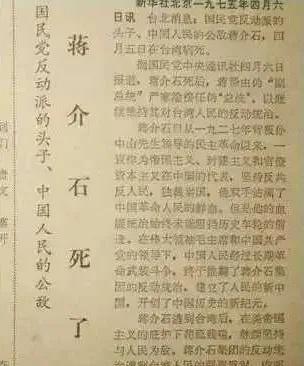 国民党反动派的头子、中国人民的公敌
蒋介石死了
新华社北京一九七五年四月六
日讯 台北消息：国民党反动派的头
子、中国人民的公敌蒋介石，四
月五日在台湾病死。
据国民党中央通讯社四月六日
报道，蒋介石死后，将由伪“副
总统”严家淦接任伪“总统”，以继
续维持其对台湾人民的反动统治。
蒋介石自从一九二七年背叛孙
中山先生领导的民主革命以来，一
直作为帝国主义、封建主义和官僚
资本主义在中国的代表，坚持反共
反人民，独裁卖国，他双手沾满了
中国革命人民的鲜血。但是他的血
腥统治始终未能阻挡历史车轮的前
进。在伟大领袖毛主席和中国共产
党的领导下，中国人民经过长期革
命武装斗争，终于推翻了蒋介石集
团的反动统治，建立了人民的新中
国，开创了中国历史的新纪元。
蒋介石逃到台湾后，在美帝国
主义的庇护下苟延残喘，继续坚持
与人民为敌。蒋介石集团的反动统